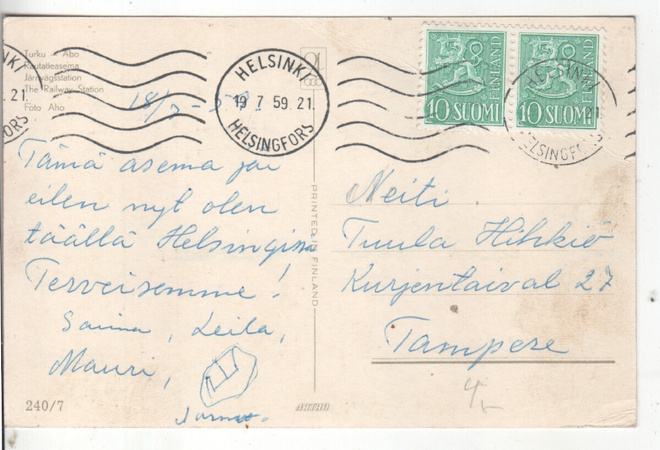 Turku - Åbo
Rautatieasema
Järnvägsstation
The Railway Station
Foto Aho
18/7-59.
HELSINKI
19.7.59.21.
HELSINGFORS
10 SUOMI FINLAND
10 SUOMI FINLAND
HELSINKI
HELSINGFORS
NKI
.21.
ORS
Tämä asema jäi
eilen nyt olen
täällä Helsingissä
Terveisemme!
Saima, Leila,
Mauri,
Jarmo.
PRINTED IN FINLAND
Neiti
Tuula Hihkiö
Kurjentaival 27
Tampere
240/7